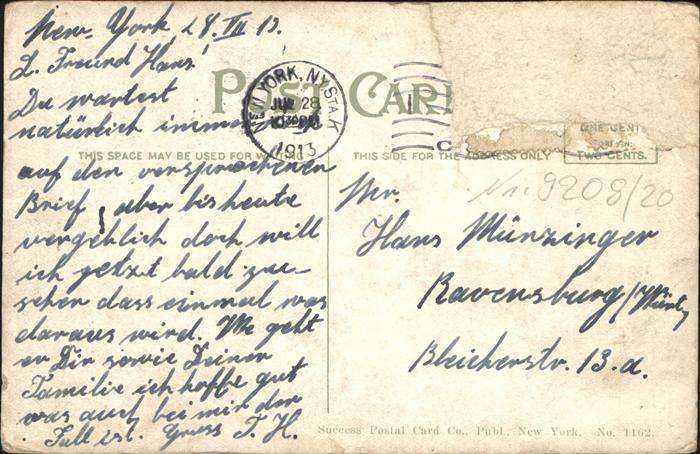 New-York, 28. VII 13.
L. Freund Hans!
Du wartest
natürlich immer
auf den versprochenen
Brief, aber bis heute
vergeblich doch will
ich jetzt bald zu-
sehen dass einmal was
daraus wird. Wie geht
es Dir sowie Deiner
Familie ich hoffe gut
was auch bei mir der
Fall ist. Gruss T. H.
POST CAR
NEW YORK, N.Y. STA. K
28
1913
THIS SPACE MAY BE USED FOR WRITING
THIS SIDE FOR THE ADDRESS ONLY
ONE CENT
TWO CENTS.
Nr. 9208/20
Mr.
Hans Münzinger
Ravensburg/Württ.
Bleicherstr. 13.a.
Success Postal Card Co., Publ., New York, No. 1162.